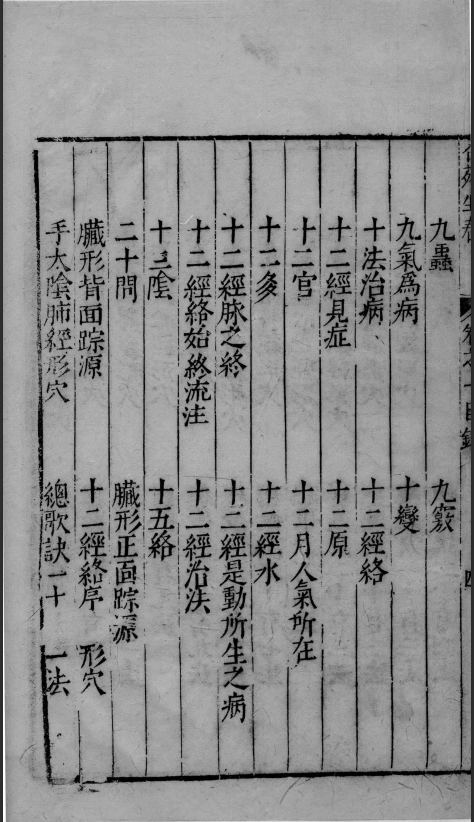 目錄 四
九蟲 九竅
九氣爲病 十變
十法治病 十二經絡
十二經見症 十二原
十二官 十二月人氣所在
十二 十二經水
十二經脉之終 十二經是動所生之病
十二經絡始終流注 十二經治法
十三陰 十五絡
二十問 臟形正面踪源
臟形背面踪源 十二經絡序 形穴
手太陰肺經形穴 總歌訣一十 一法